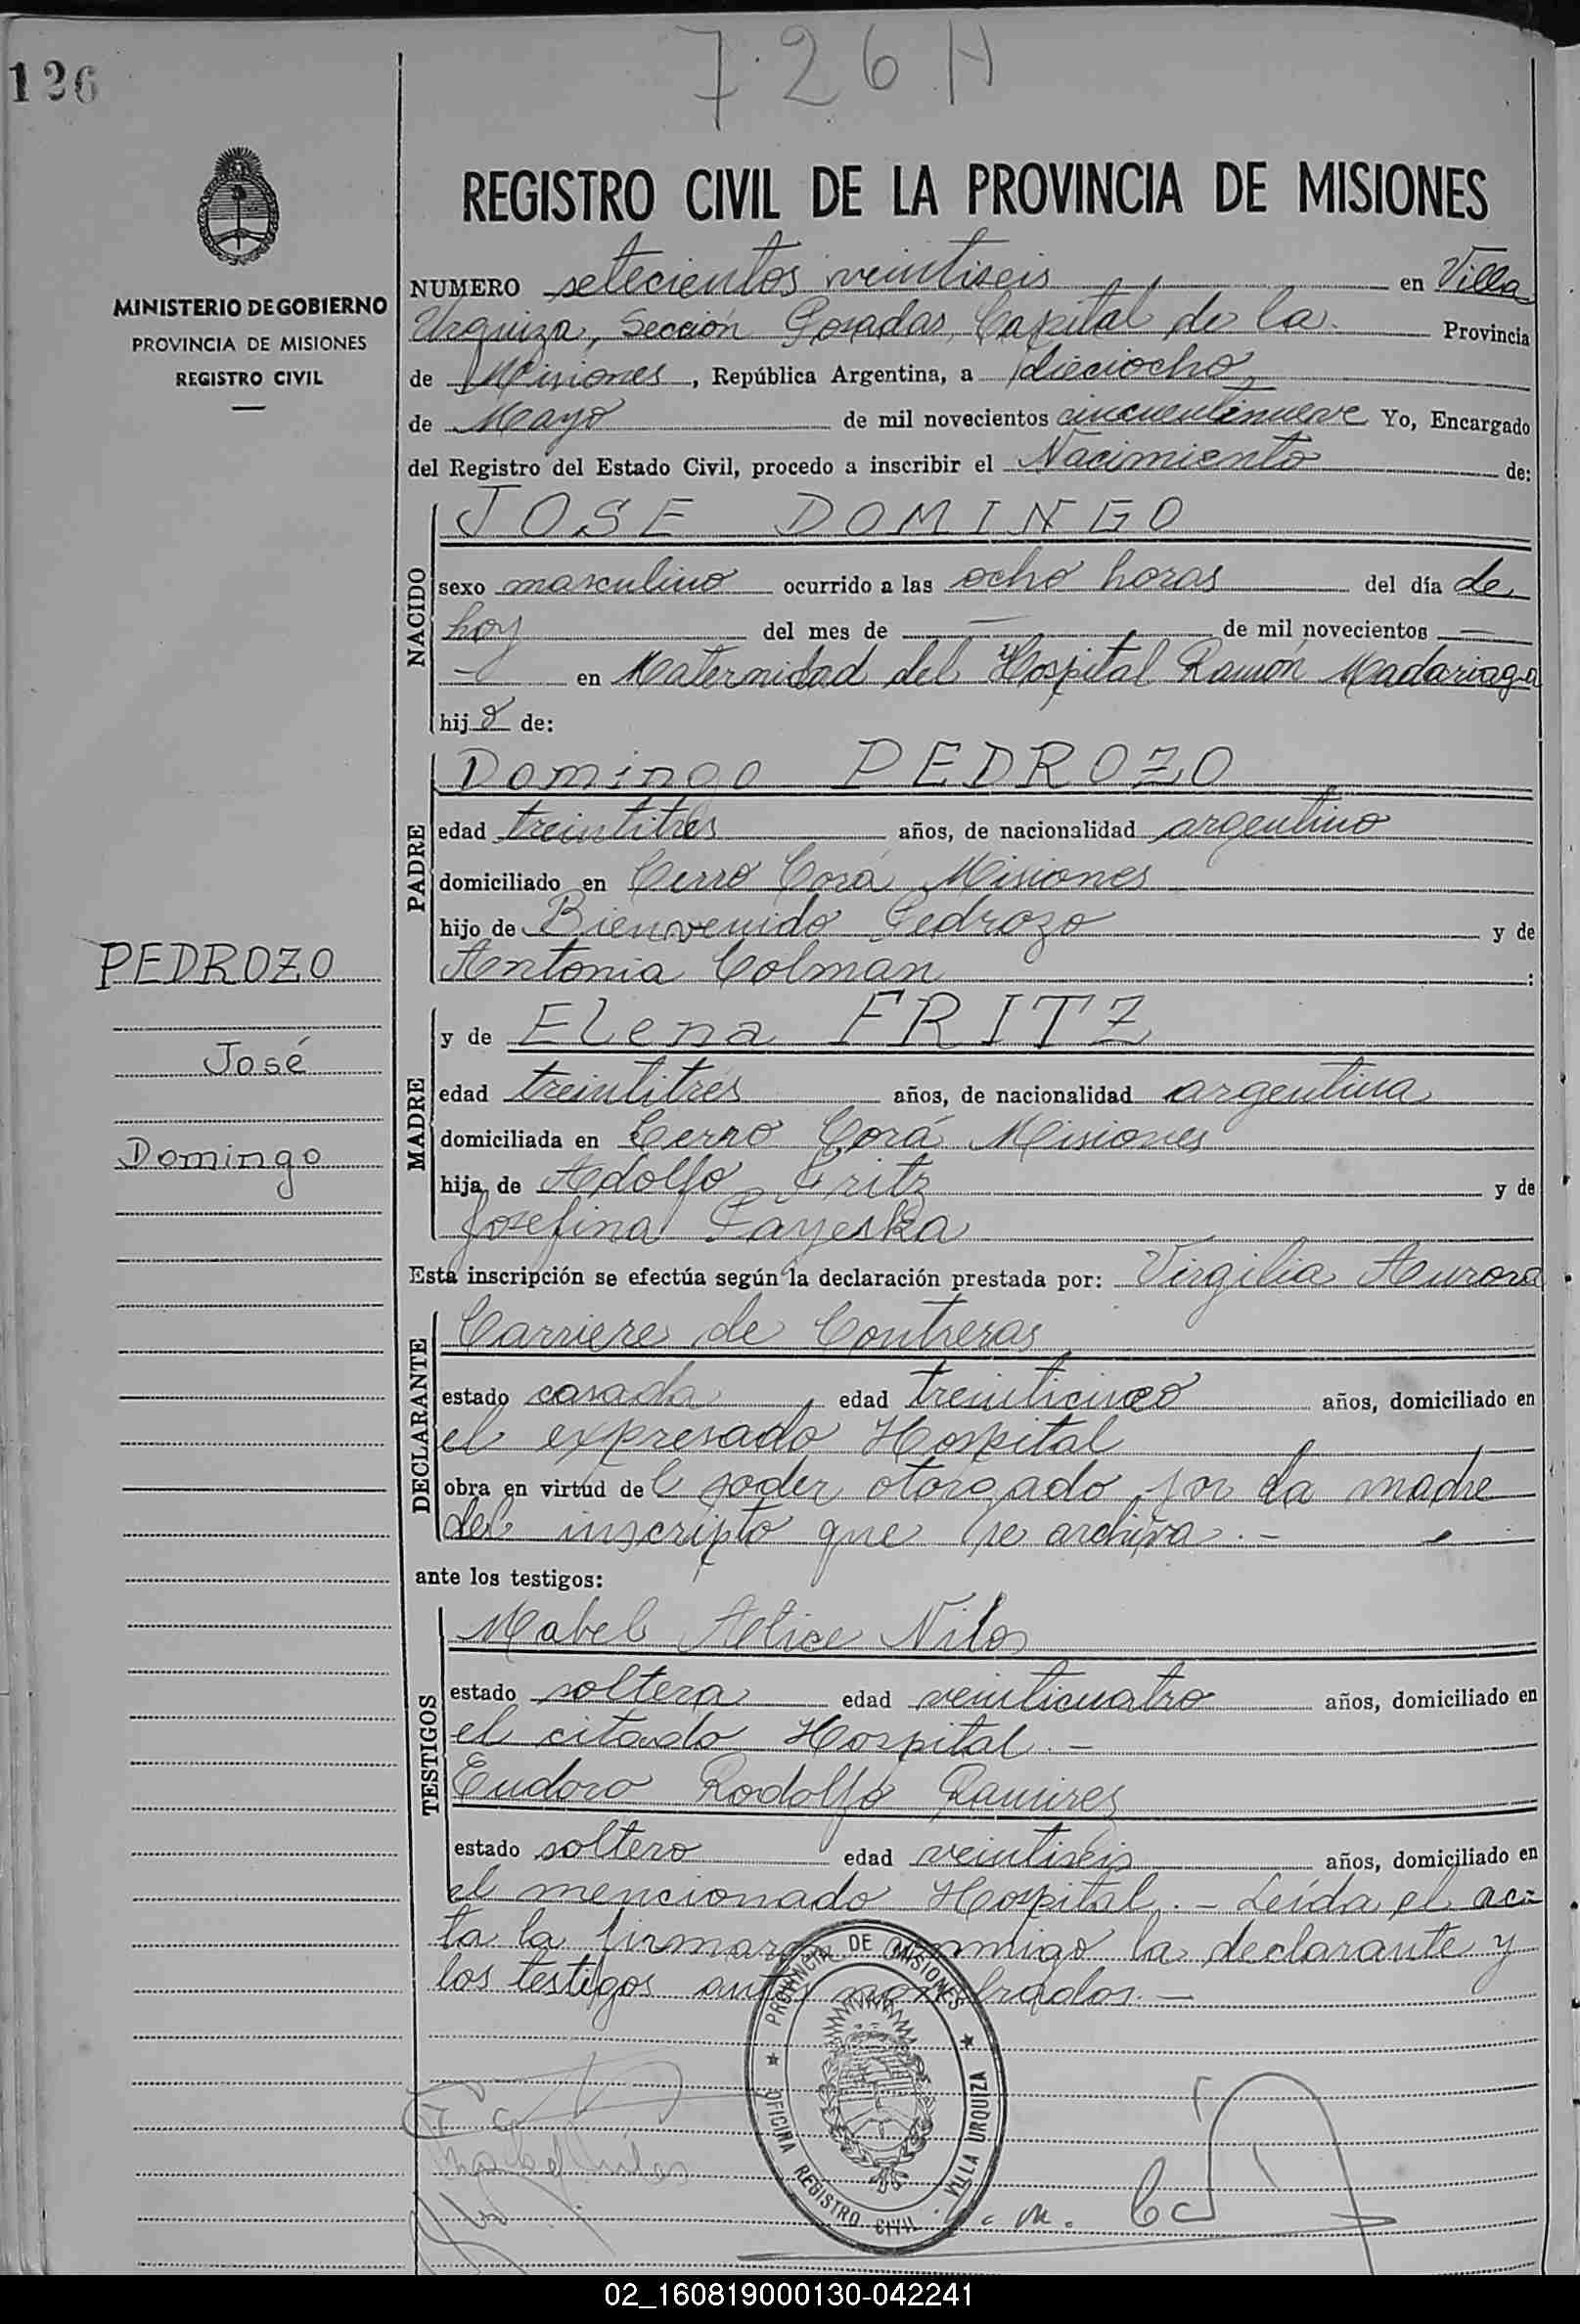 7.26 H
126
REGISTRO CIVIL DE LA PROVINCIA DE MISIONES
MINISTERIO DE GOBIERNO
PROVINCIA DE MISIONES
REGISTRO CIVIL
NUMERO setecientos veintiseis en Villa
Urquiza, Sección Posadas, Capital de la Provincia
de Misiones, República Argentina, a dieciocho
de Mayo de mil novecientos cincuentinueve Yo, Encargado
del Registro del Estado Civil, procedo a inscribir el Nacimiento de:
NACIDO
JOSE DOMINGO
sexo masculino ocurrido a las ocho horas del día de
hoy del mes de — de mil novecientos —
— en Maternidad del Hospital Ramón Madariaga
hijo de:
PADRE
Domingo PEDROZO
edad treintitres años, de nacionalidad argentino
domiciliado en Cerro Corá Misiones
hijo de Bienvenido Pedrozo y de
Antonia Colman :
PEDROZO
José
Domingo
MADRE
y de Elena FRITZ
edad treintitrés años, de nacionalidad argentina
domiciliada en Cerro Corá Misiones
hija de Adolfo Fritz y de
Josefina
Esta inscripción se efectúa según la declaración prestada por: Virgilia Aurora
DECLARANTE
Carriere de Contreras
estado casada edad treinticinco años, domiciliado en
el expresado Hospital
obra en virtud del poder otorgado por la madre
del inscripto que se archiva.-
ante los testigos:
TESTIGOS
Mabel Alice Nilos
estado soltera edad veinticuatro años, domiciliado en
el citado Hospital.-
Eudoro Rodolfo Ramires
estado soltero edad veintiseis años, domiciliado en
el mencionado Hospital.- Leída el ac-
ta la firmaron conmigo la declarante y
los testigos antes nombrados.-
PROVINCIA DE MISIONES
OFICINA REGISTRO CIVIL · VILLA URQUIZA
02_160819000130-042241